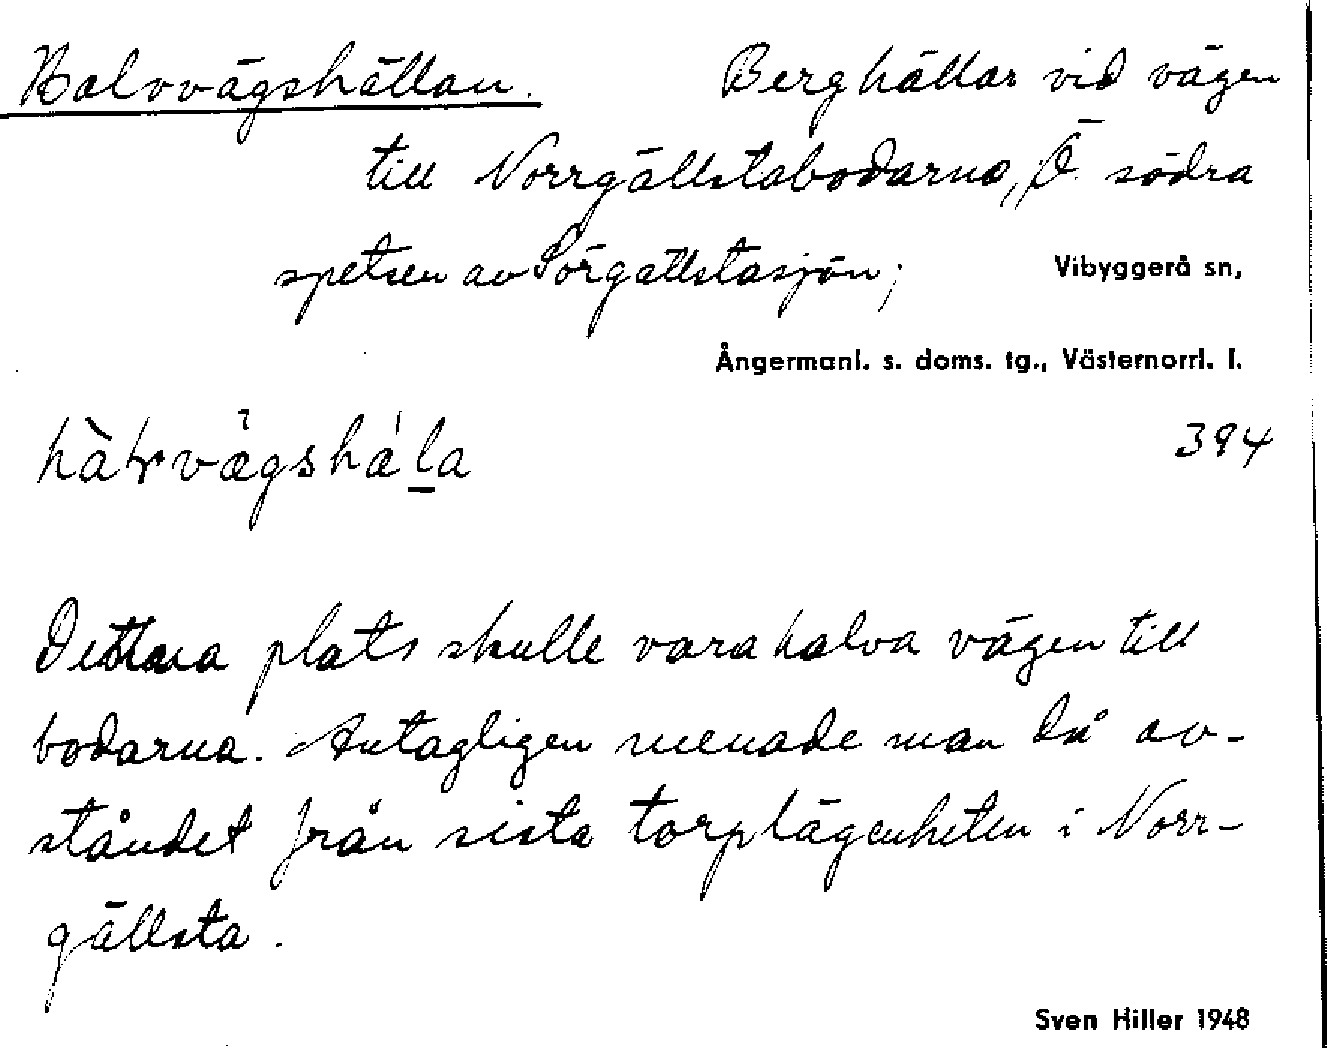 Halvvägshällan. Berghällar vid vägen
till Norrgällstabodarna, Ö. södra
spetsen av Sörgällstasjön; Vibyggerå sn,
Ångermanl. s. doms. tg., Västernorrl. l.
394
Dettaa plats skulle vara halva vägen till
bodarna. Antagligen menade man då av-
ståndet från sista torplägenheten i Norr-
gällsta.
Sven Hiller 1948